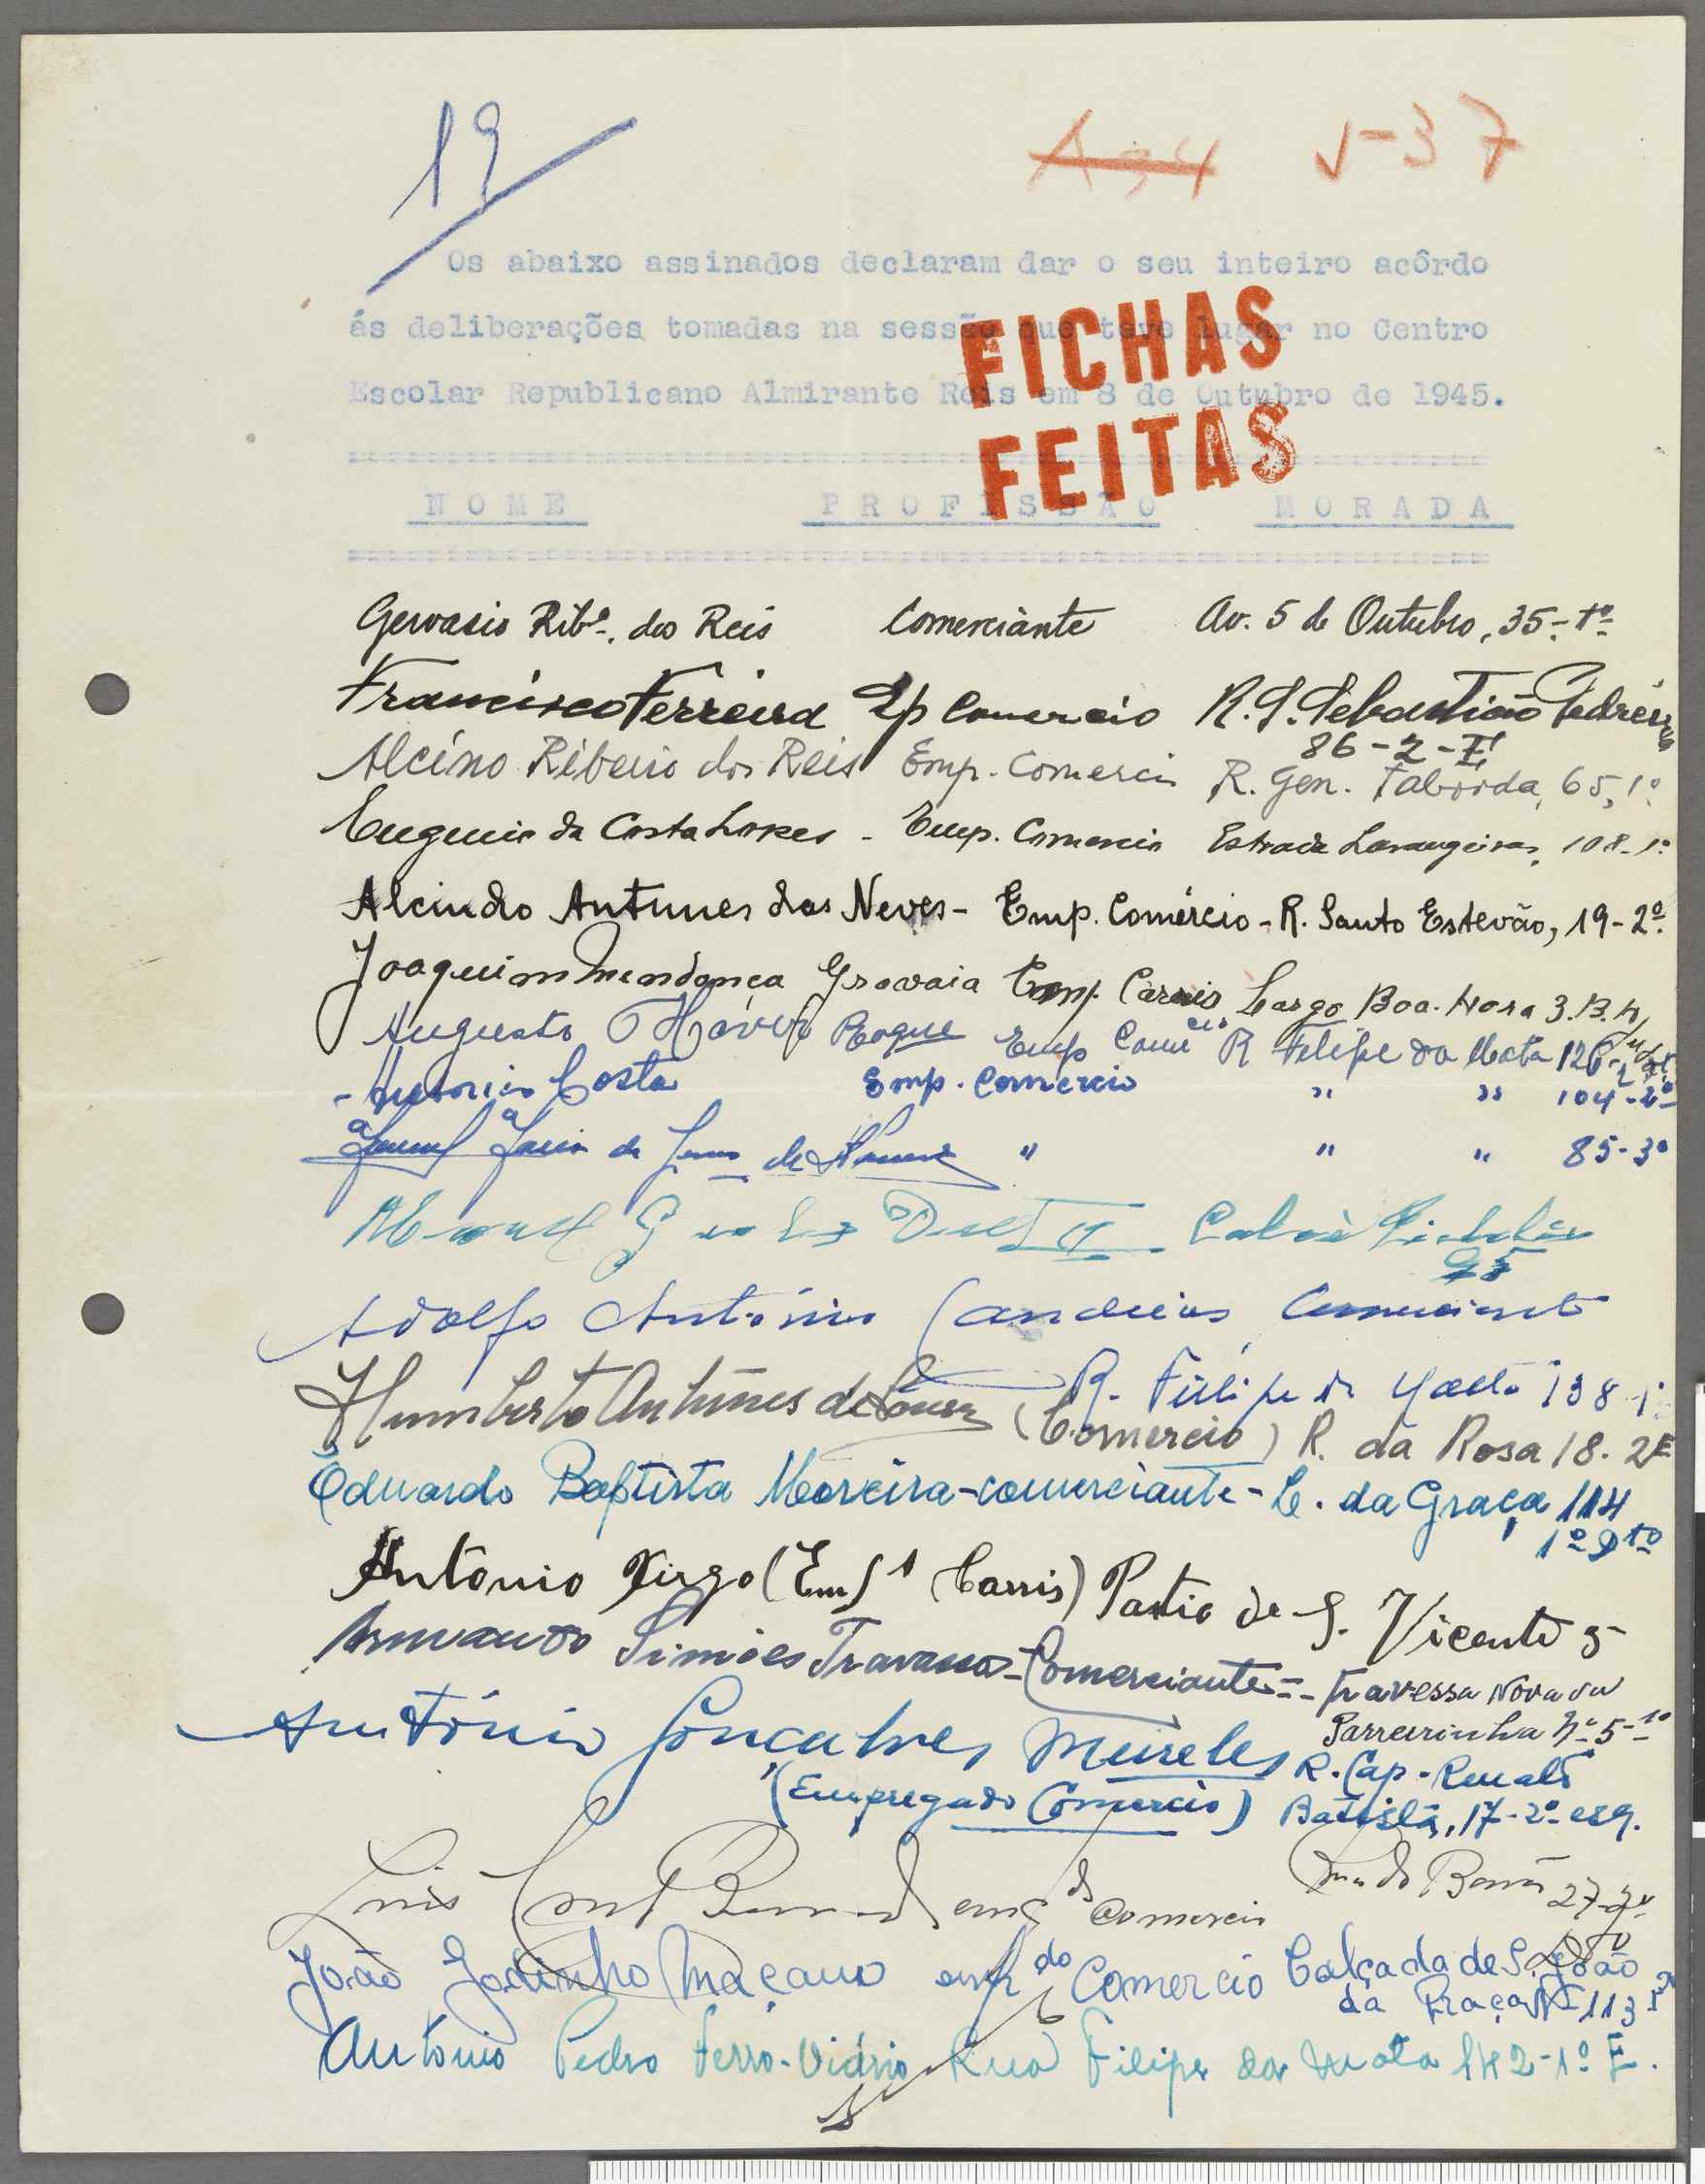 19
A 34 V-37
Os abaixo assinados declaram dar o seu inteiro acôrdo
ás deliberações tomadas na sessão que teve lugar no Centro
Escolar Republicano Almirante Reis em 8 de Outubro de 1945.
FICHAS
FEITAS
NOME PROFISSÃO MORADA
Gervasio Ribº. dos Reis Comerciante Av. 5 de Outubro, 35-
Francisco Ferreira Ep Comercio R. S. Sebastião Pedreira
86-2-E
Alcino Ribeiro dos Reis Emp. Comercio R. Gen. Taborda, 65, 1º
Eugenio da Costa Lopes - Emp. Comercio Estrada Larangeiras, 108-1º
Alcindo Antunes das Neves - Emp. Comércio - R. Santo Estevão, 19-2º
Joaquim Mendonça Gravaia Emp. Carris Largo Boa-Hora 3.
Augusto Roque Emp Comercio R Filipe da Mata 126-
- Antonio Costa Emp. Comercio " " 104-2º
de " " " 85-3º
Manuel
95
Adolfo António Candeias Comerciante
R. Filipe da Mata 138-1º
Humberto Antunes de Sousa (Comercio) R. da Rosa 18. 2E
Eduardo Baptista Moreira - comerciante - C. da Graça 114
1º Dto
António Virgo (Emp Carris) Patio de S. Vicente 5
Armando Simões Travassos - Comerciante - Travessa Nova da
Parreirinha Nº 5-1º
António Gonçalves Meireles R. Cap. Renato
(Empregado Comercio) Batista, 17-2º esq.
Luis empdo Comercio 27-2º
João Godinho Maçano emp do Comercio Calçada de S. João
da Praça Nº 113
António Pedro Ferro-Viário Rua Filipe da Mata 142-1º E.